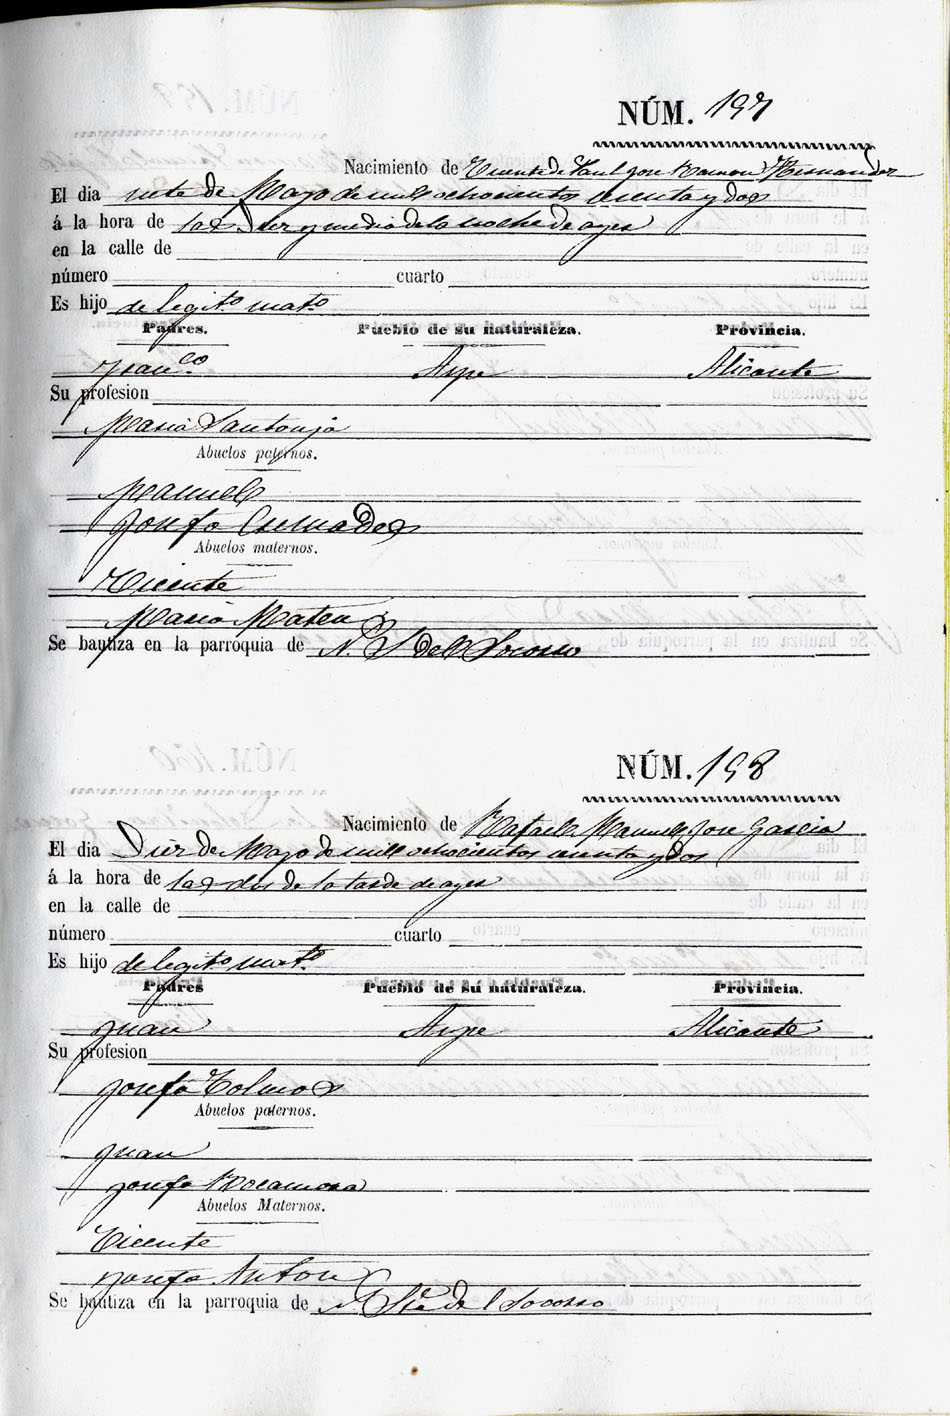 NÚM. 197
Nacimiento de Vicente de Paul Jose Ramon Hernandez
El dia siete de Mayo de mill ochocientos sesenta y dos
á la hora de las Diez y media de la noche de ayer
en la calle de
número cuarto
Es hijo de legit.º mat.º
Padres. Pueblo de su naturaleza. Provincia.
Fran.co Aspe Alicante
Su profesion
Maria Santonja
Abuelos paternos.
Manuel
Josefa Cremades
Abuelos maternos.
Vicente
Maria Mateu
Se bautiza en la parroquia de N. S. del Socorro
NÚM. 198
Nacimiento de Rafael Manuel Jose Garcia
El dia Diez de Mayo de mill ochocientos sesenta y dos
á la hora de las dos de la tarde de ayer
en la calle de
número cuarto
Es hijo de legit.º mat.º
Padres Pueblo de su naturaleza. Provincia.
Juan Aspe Alicante
Su profesion
Josefa Tolmos
Abuelos paternos.
Juan
Josefa Rocamora
Abuelos Maternos.
Vicente
Josefa Anton
Se bautiza en la parroquia de N. Sra del Socorro